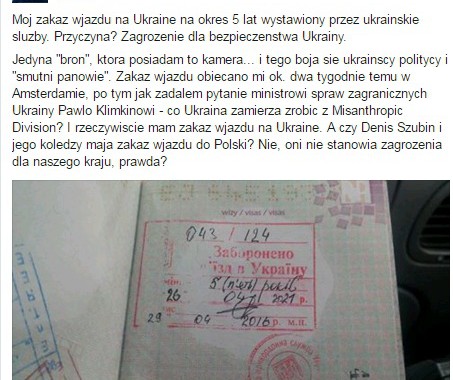 Moj zakaz wjazdu na Ukraine na okres 5 lat wystawiony przez ukrainskie
sluzby. Przyczyna? Zagrozenie dla bezpieczenstwa Ukrainy.
Jedyna "bron", ktora posiadam to kamera... i tego boja sie ukrainscy politycy i
"smutni panowie". Zakaz wjazdu obiecano mi ok. dwa tygodnie temu w
Amsterdamie, po tym jak zadalem pytanie ministrowi spraw zagranicznych
Ukrainy Pawlo Klimkinowi - co Ukraina zamierza zrobic z Misanthropic
Division? I rzeczywiscie mam zakaz wjazdu na Ukraine. A czy Denis Szubin i
jego koledzy maja zakaz wjazdu do Polski? Nie, oni nie stanowia zagrozenia
dla naszego kraju, prawda?
wizy / visas / visas
043 / 124
Заборонено
в'їзд в Україну
5 (п'ять) років
26 04 2021 р.
29 04 2016 р. м.п.